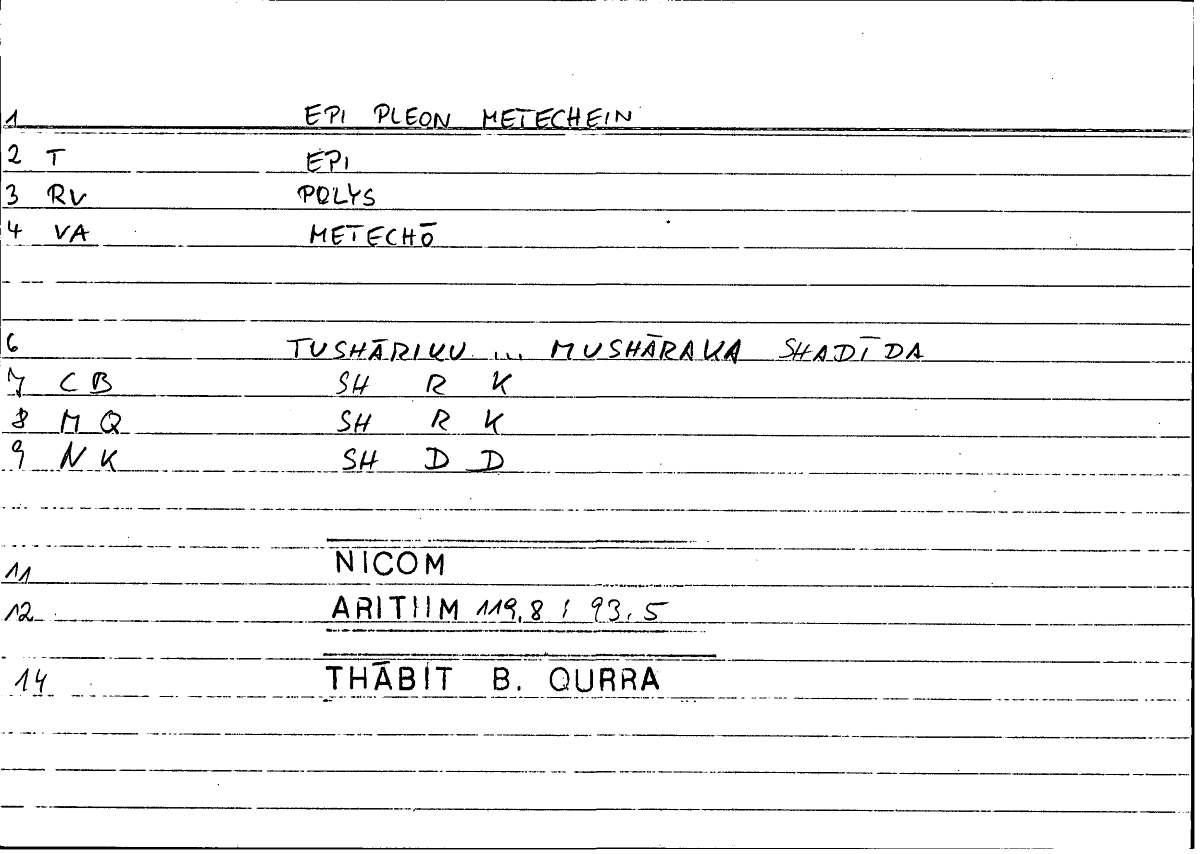 1 EPI PLEON METECHEIN
2 T EPI
3 RV POLYS
4 VA METECHŌ
6 TUSHĀRIKU ... MUSHĀRAKA SHADĪDA
7 CB SH R K
8 MQ SH R K
9 NK SH D D
11 NICOM
12 ARITHM 119,8 ; 93,5
14 THĀBIT B. QURRA